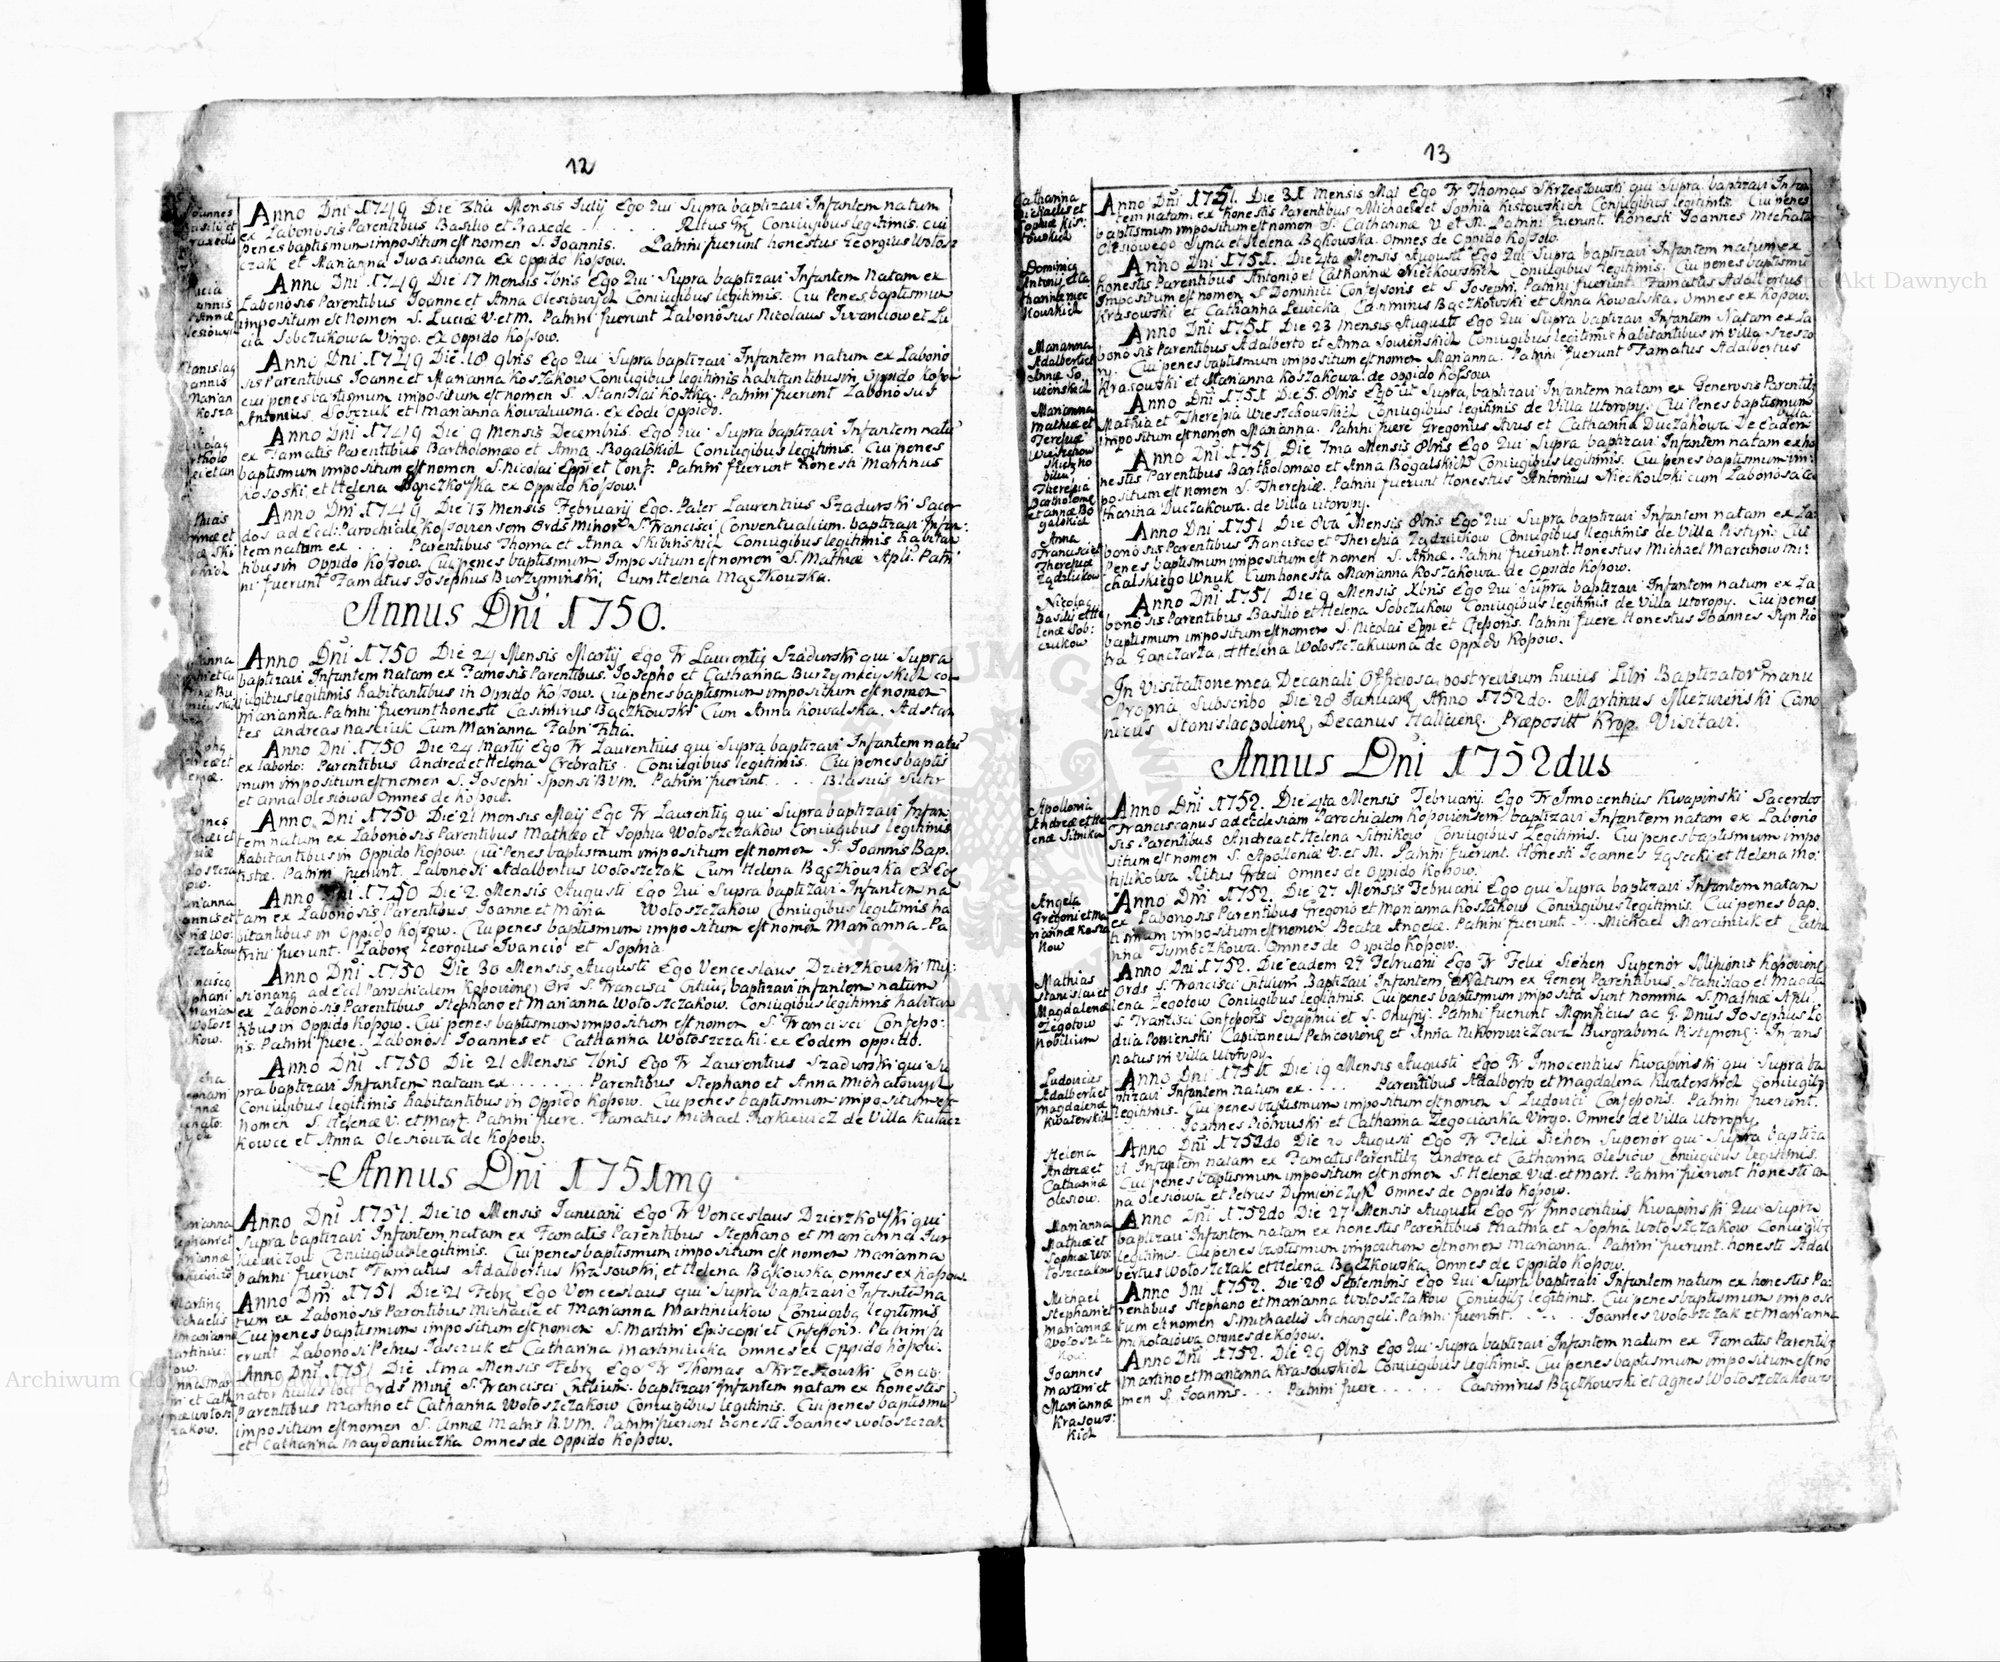 12
Joannes
Basilij et
Praxedis
Anno Dni 1749 Die 3tia Mensis Julij Ego Qui Supra baptizavi Infantem natum
ex Labonosis Parentibus Basilio et Praxede . . . . . Ritus Grę Coniugibus legitimis. cui
penes baptismum impositum est nomen S. Joannis. Patrini fuerunt honestus Georgius Wołosz
czak et Marianna Iwasiowna ex oppido Kossow.
Anno Dni 1749 Die 17 Mensis 7bris Ego Qui Supra baptizavi Infantem Natam ex
Labonosis Parentibus Joanne et Anna Olesiowych Coniugibus legitimis. Cui Penes baptismum
impositum est Nomen S. Luciæ V. et M. Patrini fuerunt Labonosus Nicolaus Iwanciow et Lu
cia Sobczukowa Virgo. ex Oppido Kossow.
Anno Dni 1749 Die 18 9bris Ego Qui Supra baptizavi Infantem natum ex Labono
sis Parentibus Joanne et Marianna Koszakow Coniugibus legitimis habitantibus in Oppido Kossow
cui penes baptismum impositum est nomen S. Stanislai Kostka. Patrini fuerunt Labonosus
Antonius Sobczuk et Marianna Kowalowna. ex Eode Oppido.
Anno Dni 1749 Die 9 Mensis Decembris. Ego Qui Supra baptizavi Infantem natu
ex Famatis Parentibus Bartholomæo et Anna Bogalskich Coniugibus legitimis. Cui penes
baptismum impositum est nomen S. Nicolai Eppi et Conf: Patrini fuerunt Honesti Martinus
Kososki, et Helena Bączkowska ex Oppido Kossow.
Anno Dni 1749 Die 13 Mensis Februarij Ego Pater Laurentius Szadurski Sacer
dos ad Eccl: Parochiale Kossoviensem Ords Minor S. Francisci Conventualium. baptizavi Infan:
tem natum ex . . . Parentibus Thoma et Anna Skibinskich Coniugibus legitimis habitan
tibus in Oppido Kossow. Cui penes baptismum Impositum est nomen S. Mathiæ Apli. Patri
ni fuerunt Famatus Josephus Burzyminski, Cum Helena Mączkowska.
Annus Dni 1750.
Anno Dni 1750 Die 24 Mensis Martij Ego Fr Laurentię Szadurski qui Supra
baptizavi Infantem natam ex Famosis Parentibus. Josepho et Catharina Burzyminskich con
iugibus legitimis habitantibus in Oppido Kossow. Cui penes baptismum impositum est nomen
Marianna. Patrini fuerunt honesti Casimirus Bączkowski Cum Anna Kowalska. Adstan
tes Andreas nasciuk Cum Marianna Fabri Filia.
Anno Dni 1750 Die 24 Martij Ego Fr Laurentius qui Supra baptizavi Infantem natu
ex labono: Parentibus Andrea et Helena Crebratis. Coniugibus legitimis. Cui penes baptis
mum impositum est nomen S. Josephi Sponsi B.V.M. Patrini fuerunt . . . Blasius Sutir
et Anna Olesiowa Omnes de Kossow.
Anno Dni 1750 Die 21 Mensis Maij Ego Fr Laurentię qui Supra baptizavi Infan
tem natum ex Labonosis Parentibus Mathæo et Sophia Wołoszczakow Coniugibus legitimis
habitantibus in Oppido Kossow. Cui Penes baptismum impositum est nomen S. Joannis Bap
tistæ. Patrini fuerunt. Labonosi Adalbertus Wołoszczak Cum Helena Bączkowska ex Eod
Anno Dni 1750 Die 2 Mensis Augusti Ego Qui Supra baptizavi Infantem na
tam ex Labonosis Parentibus Joanne et Maria Wołoszczakow Coniugibus legitimis ha
bitantibus in Oppido Kossow. Cui penes baptismum impositum est nomen Marianna. Pa
trini fuerunt. Labonę Georgius Ivancio et Sophia.
Anno Dni 1750 Die 30 Mensis Augusti Ego Venceslaus Dzierzkowski Mis:
sionarię ad Eccl Parochialem Kossovienę Ords S. Francisci Cntliū, baptizavi infantem natum
ex Labonosis Parentibus Stephano et Marianna Wołoszczakow. Coniugibus legitimis habitan
tibus in Oppido Kossow. Cui penes baptismum impositum est nomen S. Francisci Confesso:
ris. Patrini fuere. Labonosi Joannes et Catharina Wołoszczaki: ex Eodem oppido.
Anno Dni 1750 Die 21 Mensis 7bris Ego Fr Laurentius Szadurski qui Su
pra baptizavi Infantem natam ex . . . . . . . Parentibus Stephano et Anna Michałowych
Coniugibus legitimis habitantibus in Oppido Kossow. Cui penes baptismum impositum est
nomen S. Helenæ V. et Mart. Patrini fuere. Famatus Michael Jurkiewicz de Villa Kulacz
kowce et Anna Olesiowa de Kossow.
Annus Dni 1751mg
Anno Dni 1751. Die 10 Mensis Januarij Ego Fr Venceslaus Dzierzkowski qui
Supra baptizavi Infantem natam ex Famatis Parentibus Stephano et Marianna Jur
kiewiczow Coniugibus legitimis. Cui penes baptismum impositum est nomen Marianna
patrini fuerunt Famatus Adalbertus Krasowski, et Helena Bąkowska, omnes ex Kossow.
Anno Dni 1751 Die 21 Febrę Ego Venceslaus qui Supra baptizavi Infantem na
tum ex Labonosis Parentibus Michaele et Marianna Martiniukow Coniugibę legitimis
Cui penes baptismum impositum est nomen S. Martini Episcopi et Cnfessoris. Patrini fu
erunt Labonosi Petrus Jaszczuk et Catharina Martiniucka omnes ex Oppido Kossow.
Anno Dni 1751 Die 1ma Mensis Febrę Ego Fr Thomas Skrzeszowski Concio
nator huius loci Ords Minę S. Francisci Cntlium. baptizavi Infantem natam ex honestis
Parentibus Martino et Catharina Wołoszczakow Coniugibus legitimis. Cui penes baptismu
impositum est nomen S. Annæ Matris B.V.M. Patrini fuerunt honesti Joannes Wołoszczak
et Catharina Maydaniuczka Omnes de Oppido Kossow.
13
Catharina
Michaelis et
Sophiæ Kis
towskich
Anno Dni 1751. Die 31 Mensis Maij Ego Fr Thomas Skrzeszowski qui Supra baptizavi Infan
tem natam. ex honestis Parentibus Michaele et Sophia Kistowskich Conjugibus legitimis. Cui penes
baptismum impositum est nomen S. Catharinæ V. et M. Patrini fuerunt. honesti Joannes Michała
Olesiowego Syna et Helena Bąkowska. Omnes de Oppido Kossow.
Dominicę
Antonij et Ca
tharinæ Niec
kowskich
Anno Dni 1751. Die 4ta Mensis Augusti Ego Qui Supra baptizavi Infantem natum ex
honestis Parentibus Antonio et Catharina Nieckowskich Coniugibus legitimis. Cui penes baptismu
Impositum est nomen S. Dominici Confessoris et S. Josephi. Patrini fuerunt Famatus Adalbertus
Krasowski et Catharina Lewicka, Casimirus Bączkowski et Anna Kowalska. Omnes ex Kossow.
Marianna
Adalberti et
Annæ So
winskich
Anno Dni 1751 Die 23 Mensis Augusti Ego Qui Supra baptizavi Infantem Natam ex La
bono sis Parentibus Adalberto et Anna Sowinskich Coniugibus legitimis habitantibus in Villa Szeszo
ry. Cui penes baptismum impositum est nomen Marianna. Patrini fuerunt Famatus Adalbertus
Krasowski et Marianna Koszakowa. de oppido Kossow
Marianna
Mathiæ et
Teresiæ
Wieszchow
skich no
bilium
Anno Dni 1751 Die 5. 8bris Ego Qui Supra, baptizavi Infantem natam ex Generosis Parentibę
Mathia et Theresia Wieszchowskich Coniugibus legitimis de Villa Utoropy. Cui Penes baptismum
Impositum est nomen Marianna. Patrini fuere Gregorius Sirus et Catharina Duczakowa De Eadem Villa
Theresia
Bartholomę
et Annæ Bo
galskich
Anno Dni 1751 Die 7ma Mensis 8bris Ego Qui Supra baptizavi Infantem natam ex ho
nestis Parentibus Bartholomæo et Anna Bogalskich Coniugibus legitimis. Cui penes baptismum im:
positum est nomen S. Theresiæ. Patrini fuerunt Honestus Antonius Nieckowski cum Labonosa Ca
tharina Duczakowa. de Villa Utoropy.
Anna
Francisci et
Theresiæ
Zadziukow
Anno Dni 1751 Die 8va Mensis 8bris Ego Qui Supra baptizavi Infantem natam ex La:
bonosis Parentibus Francisco et Theresia Zadziukow Coniugibus legitimis de Villa Pistyn: Cui
Penes baptismum impositum est nomen S. Annæ. Patrini fuerunt Honestus Michael Marcinow Mi:
chalskiego Wnuk Cum honesta Marianna Koszakowa. de Oppido Kossow.
Nicolaę
Basilij et He
lenæ Sob:
czukow
Anno Dni 1751 Die 9 Mensis Xbris Ego Qui Supra baptizavi Infantem natum ex La
bonosis Parentibus Basilio et Helena Sobczukow Coniugibus legitimis de Villa Utoropy. Cui penes
baptismum impositum est nomen S. Nicolai Eppi et Cfessoris. Patrini fuere Honestus Joannes Syn Pio
tra Ganczarza, et Helena Wołoszczakuwna de Oppido Kossow.
In Visitatione mea Decanali Officiosa, post revisum huius Libri Baptizator Manu
Propria Subscribo Die 28 Januarę Anno 1752do. Martinus Miezwinski Cano
nicus Stanislaopolienę, Decanus Haliciensę. Præpositt Krop. Visitavi.
Annus Dni 1752dus
Apollonia
Andreæ et He
lenæ Sitnikow
Anno Dni 1752. Die 4ta Mensis Februarij. Ego Fr Innocentius Kwapinski Sacerdos
Franciscanus ad Ecclesiam Parochialem Kossoviensem, baptizavi Infantem natam ex Labono
sis Parentibus Andrea et Helena Sitnikow Coniugibus Legitimis. Cui penes baptismum impo
situm est nomen S. Apollonia V. et M. Patrini fuerunt. Honesti Joannes Gąsecki et Helena Mo:
tijlikowa Ritus Græci Omnes de Oppido Kossow.
Angela
Gregorij et Ma
riannæ Kosza
kow
Anno Dni 1752. Die 27 Mensis Februarij Ego qui Supra baptizavi Infantem natam
ex Labonosis Parentibus Gregorio et Marianna Koszakow Coniugibus legitimis. Cui penes bap.
tismum impositum est nomen Beatæ Angelæ. Patrini fuerunt. . . Michael Marciniuk et Catha
rina Tymęczkowa. Omnes de Oppido Kossow.
Mathias
Stanislai et
Magdalenæ
Zegotow
nobilium
Anno Dni 1752. Die eadem 27 Februarij Ego Fr Felix Siehen Superior Missionis Kossovienę
Ords S. Francisci Cntlium Baptizavi Infantem Natum ex Generę Parentibus Stanislao et Magda
lena Zegotow Coniugibus legitimis. Cui penes baptismum imposita Sunt nomina S. Mathiæ Apli.
S. Francisci Confessoris Seraphici et S. Onufrij. Patrini fuerunt Magnificus ac G. Dnus Josephus Lo
dzia Poninski Capitaneus Petricovienę et Anna Nikorowiczowa Burgrabina Pistynenę: Infans
natus in Villa Utoropy.
Ludovicus
Adalberti et
Magdalenæ
Kwaterskich
Anno Dni 1752 Die 19 Mensis Augusti Ego Fr Innocentius Kwapinski qui Supra ba
ptizavi Infantem natum ex . . . . Parentibus Adalberto et Magdalena Kwaterskich Coniugibę
legitimis. Cui penes baptismum impositum est nomen S. Ludovici Confessoris. Patrini fuerunt.
. . . . . Joannes Piotrowski et Catharina Zegocianka Virgo. Omnes de Villa Utoropy.
Helena
Andreæ et
Catharinæ
Olesiow.
Anno Dni 1752do Die 20 Augusti Ego Fr Felix Siehen Superior qui Supra baptiza
vi Infantem natam ex Famatis Parentibę Andrea et Catharina Olesiow Coniugibus legitimis.
Cui penes baptismum impositum est nomen S. Helenæ Vid. et Mart. Patrini fuerunt honesti An
na Olesiowa et Petrus Dymienczyk Omnes de Oppido Kossow.
Marianna
Mathiæ et
Sophiæ Wo
łoszczakow
Anno Dni 1752do Die 27 Mensis Augusti Ego Fr Innocentius Kwapinski Qui Supra
baptizavi Infantem natam ex honestis Parentibus Mathia et Sophia Wołoszczakow Coniugibę
legitimis. Cui penes baptismum impositum est nomen Marianna. Patrini fuerunt. honesti Adal
bertus Wołoszczak et Helena Bączkowska Omnes de Oppido Kossow.
Michael
Stephani et
Mariannæ
Wołoszcza
kow.
Anno Dni 1752. Die 28 Septembris Ego Qui Supra baptizavi Infantem natum ex honestis Pa
rentibus Stephano et Marianna Wołoszczakow Coniugibę legitimis. Cui penes baptismum impos
tum est nomen S. Michaelis Archangeli. Patrini fuerunt. . . . . Joannes Wołoszczak et Marianna
Mikołaiowa omnes de Kossow.
Joannes
Martini et
Mariannæ
Krasows:
kich
Anno Dni 1752. Die 29 8bris Ego Qui Supra baptizavi Infantem natum ex Famatis Parentibę
Martino et Marianna Krasowskich Coniugibus legitimis. Cui penes baptismum impositum est no
men S. Joannis . . . Patrini fuere . . . . . Casimirus Bączkowski et Agnes Wołoszczakowa